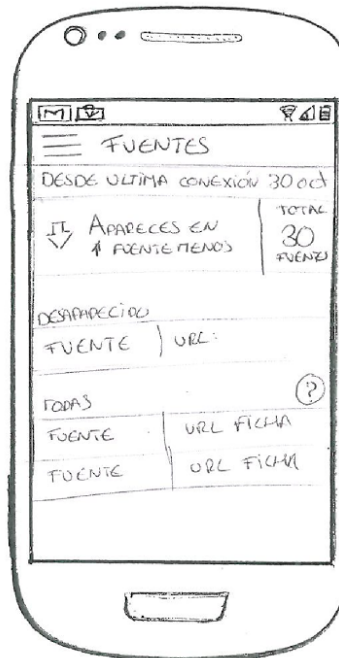 FUENTES
DESDE ULTIMA CONEXIÓN 30 oct
APARECES EN
1 FUENTE MENOS
TOTAL
30
FUENTES
DESAPARECIDO
FUENTE URL:
TODAS ?
FUENTE URL FICHA
FUENTE URL FICHA